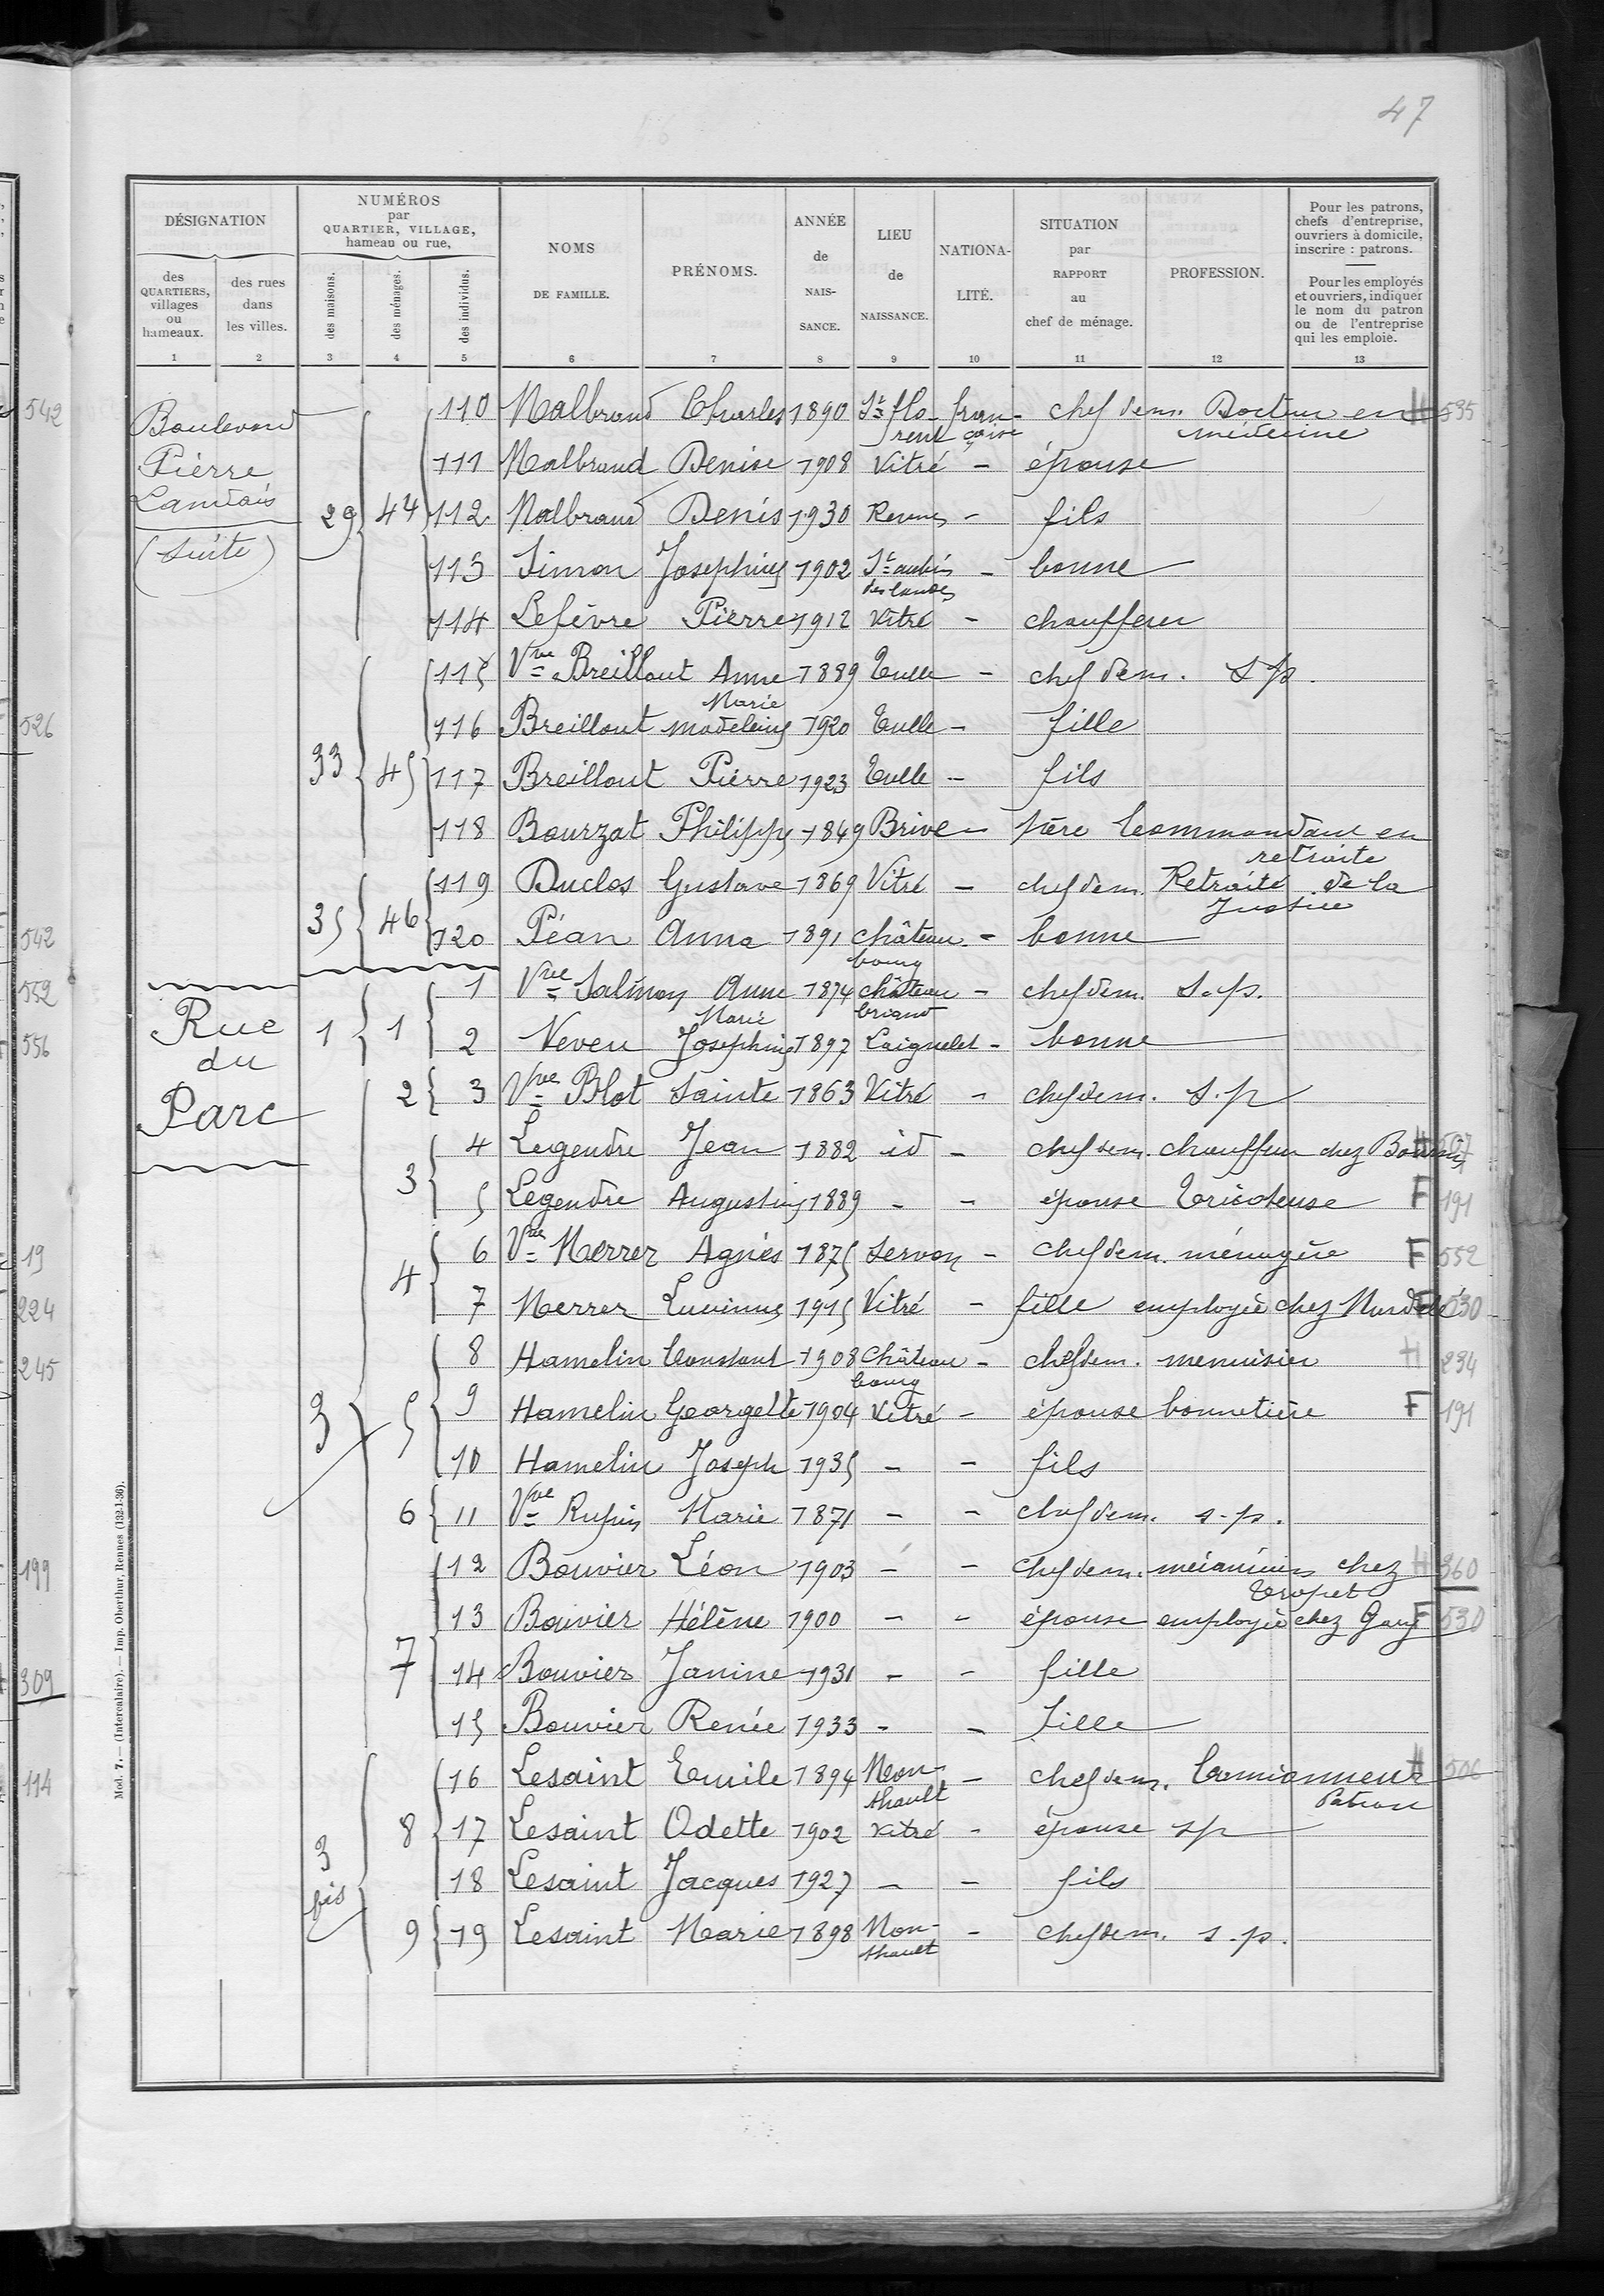 47
DÉSIGNATION
NUMÉROS par QUARTIER, VILLAGE, hameau ou rue,
NOMS DE FAMILLE.
PRÉNOMS.
ANNÉE de NAIS-SANCE.
LIEU de NAISSANCE.
NATIONA-LITÉ.
SITUATION par RAPPORT au chef de ménage.
PROFESSION.
Pour les patrons, chefs d'entreprise, ouvriers à domicile, inscrire : patrons.
Pour les employés et ouvriers, indiquer le nom du patron ou de l'entreprise qui les emploie.
des QUARTIERS, villages ou hameaux.
des rues dans les villes.
des maisons.
des ménages.
des individus.
1 2 3 4 5 6 7 8 9 10 11 12 13
Boulevard Pierre Landais (Suite)
29 44
110 Malbrand Charles 1890 St flo-rent fran-çaise chef dem. Docteur en médecine H 535
111 Malbrand Denise 1908 Vitré - épouse
112 Malbrand Denis 1930 Rennes - fils
113 Simon Josephine 1902 St aubin des landes - bonne
114 Lefèvre Pierre 1912 Vitré - chauffeur
33 45
115 Vve Breillout Anne 1889 Tulle - chef dem. s.p.
116 Breillout Marie madeleine 1920 Tulle - fille
117 Breillout Pierre 1923 Tulle - fils
118 Bourzat Philippe 1849 Brive - père Commandant en retraite
35 46
119 Duclos Gustave 1869 Vitré - chef dem. Retraité de la Justice
120 Péan Anna 1891 Château-bourg - bonne
Rue du Parc
1 1
1 Vve Salmon Anne 1874 château briant - chef dem. s.p.
2 Neveu Marie Josephine 1897 Laignelet - bonne
3
2 3 Vve Blot Sainte 1863 Vitré - chef dem. s.p
3 4 Legendre Jean 1882 id - chef dem. chauffeur chez
5 Legendre Augustine 1889 - - épouse Tricoteuse F 191
4 6 Vve Merrer Agnès 1875 Servon - chef dem. ménagère F 552
7 Merrer Lucienne 1915 Vitré - fille employée chez F 530
5 8 Hamelin Constant 1908 Château-bourg - chef dem. menuisier H 234
9 Hamelin Georgette 1904 Vitré - épouse bonnetière F 191
10 Hamelin Joseph 1935 - - fils
6 11 Vve Rupin Marie 1871 - - chef dem. s.p.
7 12 Bouvier Léon 1903 - - chef dem. mécanicien chez Tropet H 360
13 Bouvier Hélène 1900 - - épouse employée chez Gary F 530
14 Bouvier Janine 1931 - - fille
15 Bouvier Renée 1933 - - fille
3 bis
8 16 Lesaint Emile 1894 Mon-thault - chef dem. Camionneur Patron H 506
17 Lesaint Odette 1902 Vitré - épouse sp
18 Lesaint Jacques 1927 - - fils
9 19 Lesaint Marie 1898 Mon-thault - chef dem. s.p.
Mod. 7. — (Intercalaire). — Imp. Oberthur, Rennes (132-1-36).
542
526
542
552
556
19
224
245
199
309
114